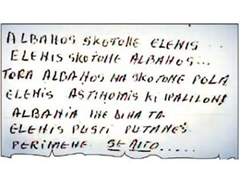 ALBANOS SKOTONE ELENIS...
ELENIS SKOTONE ALBANOS...
TORA ALBANOS NA SKOTONE POLA
ELENIS ASTINOMIS KI IPALILONS
ALBANIA INE DINATA
ELENIS PUSTI PUTANES
PERIMENE SE AITO.....